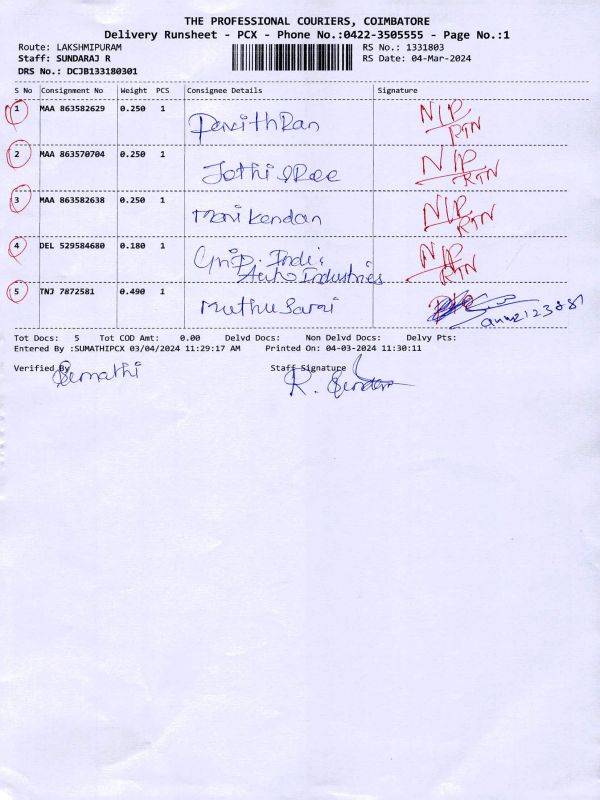 THE PROFESSIONAL COURIERS, COIMBATORE
Delivery Runsheet - PCX - Phone No.:0422-3505555 - Page No.:1
Route: LAKSHMIPURAM RS No.: 1331803
Staff: SUNDARAJ R RS Date: 04-Mar-2024
DRS No.: DCJB133180301
S No Consignment No Weight PCS Consignee Details Signature
1 MAA 863582629 0.250 1 N/P
RTN
2 MAA 863570704 0.250 1 Jothi sree N/P
RTN
3 MAA 863582638 0.250 1 Mani kandan N/P
RTN
4 DEL 529584680 0.180 1 Indi: N/P
Auto Industries RTN
5 TNJ 7872581 0.490 1 Muthu Sarai
Tot Docs: 5 Tot COD Amt: 0.00 Delvd Docs: Non Delvd Docs: Delvy Pts:
Entered By :SUMATHIPCX 03/04/2024 11:29:17 AM Printed On: 04-03-2024 11:30:11
Verified By Staff Signature
Sumathi R.